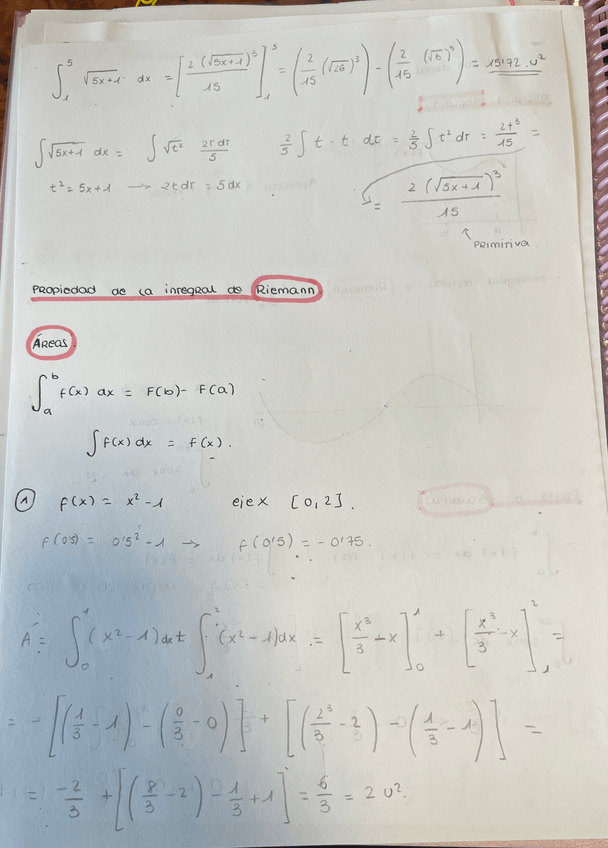 ∫₁⁵ √5x+1 dx = [2(√5x+1)³/15]₁⁵ = (2/15 (√26)³) - (2/15 (√6)³) = 15'72 u²
∫√5x+1 dx = ∫√t² 2t dt/5 2/5 ∫ t · t dt = 2/5 ∫ t² dt = 2t³/15 =
t² = 5x+1 → 2t dt = 5 dx
= 2(√5x+1)³/15
↑ Primitiva.
Propiedad de la integral de Riemann
Áreas.
∫ₐᵇ f(x) dx = F(b) - F(a)
∫ f(x) dx = f(x).
① f(x) = x² - 1 eje x [0,2].
f(0'5) = 0'5² - 1 → f(0'5) = -0'75.
A = ∫₀¹ (x² - 1) dx + ∫₁² (x² - 1) dx = [x³/3 - x]₀¹ + [x³/3 - x]₁² =
= - [(1/3 - 1) - (0/3 - 0)] + [(2³/3 - 2) - (1/3 - 1)] =
= -2/3 + [(8/3 - 2) - 1/3 + 1] = 6/3 = 2 u².